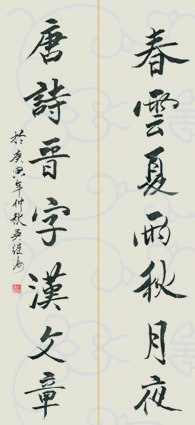 春雲夏雨秋月夜
唐詩晉字漢文章
於庚寅年仲秋吳